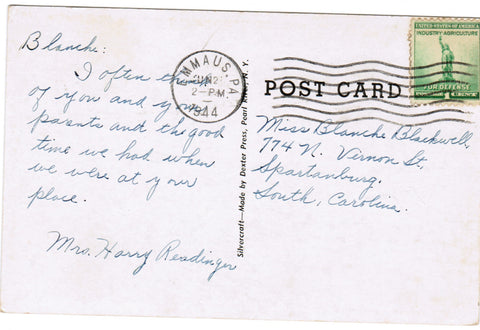 Blanche:
I often think
of you and your
parents and the good
time we had when
we were at your
place.
Mrs. Harry Readinger
EMMAUS, PA.
JUN 2
2-PM
1944
Silvercraft—Made by Dexter Press, Pearl River, N. Y.
POST CARD
UNITED STATES OF AMERICA
INDUSTRY AGRICULTURE
FOR DEFENSE
1¢
Miss Blanche Blackwell,
774 N. Vernon St,
Spartanburg,
South, Carolina.